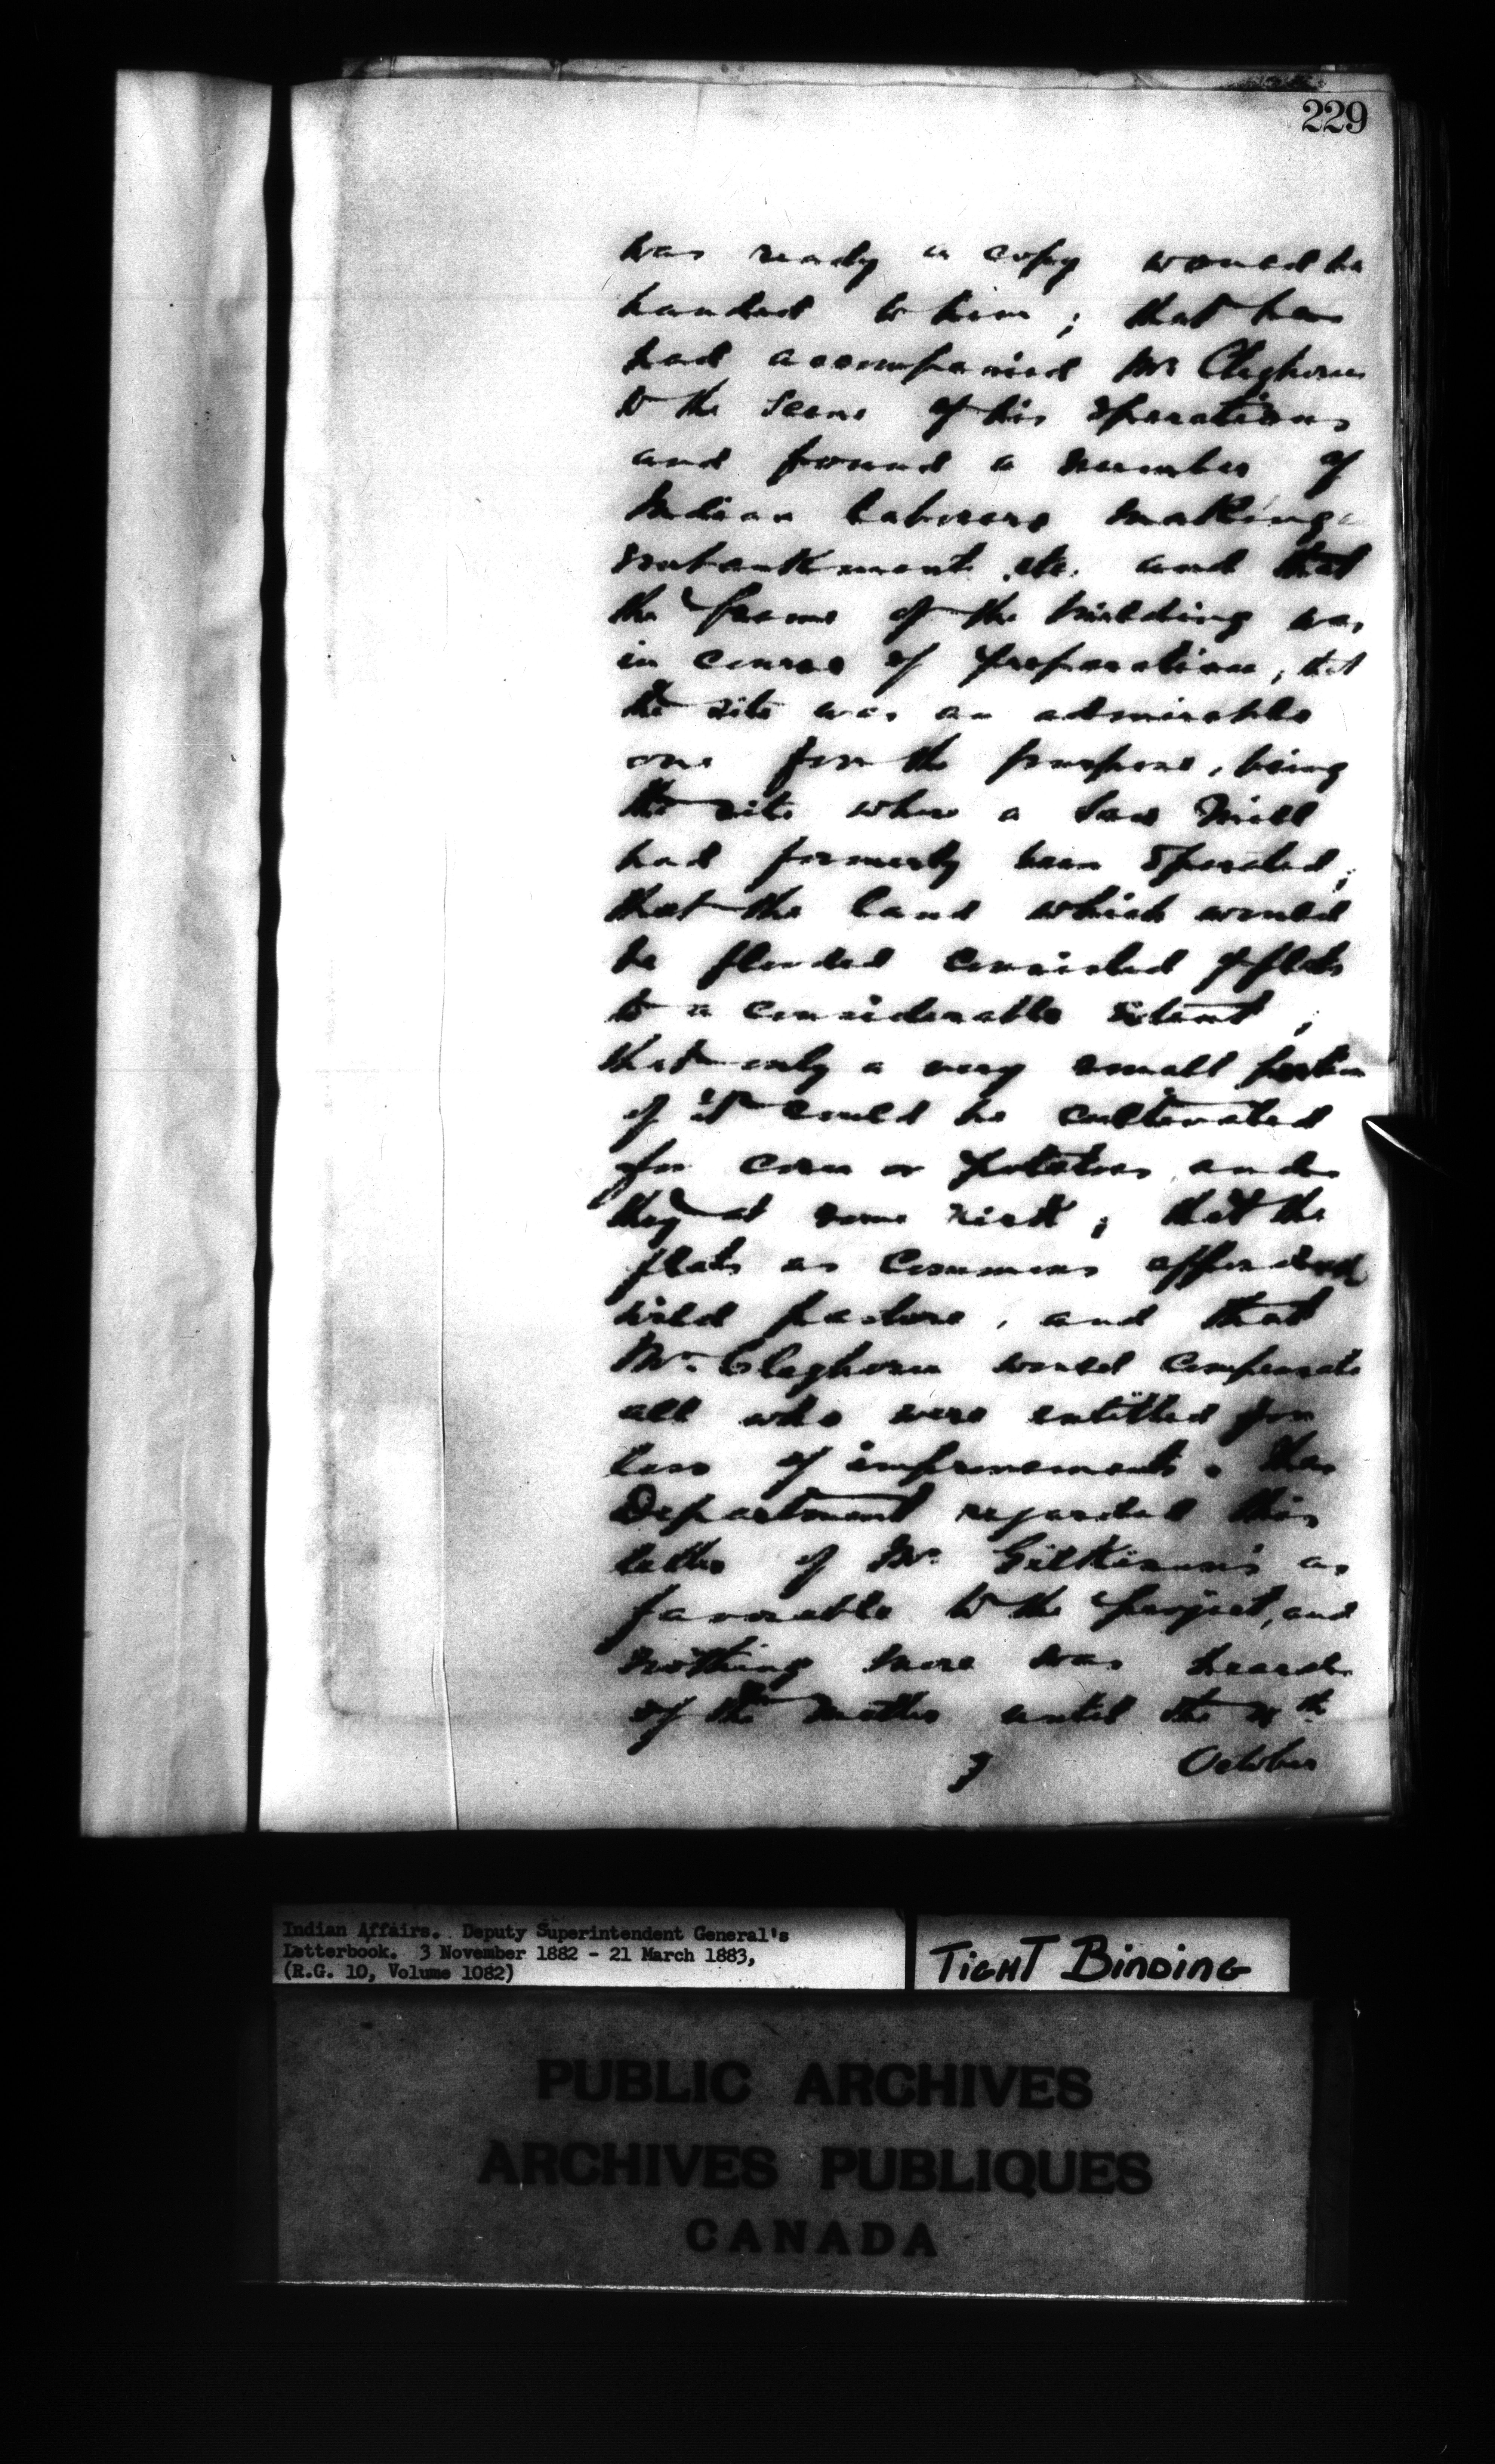 229
was ready a copy would be
handed to him; that he
had accompanied Mr Cleghorn
to the scene of his operations
and found a number of
Indian laborers making
embankment etc. and that
the frame of the building was
in course of preparation, that
the site was an admirable
one for the purpose, being
the site where a Saw Mill
had formerly been operated;
that the land which would
be flooded consisted of flats
to a considerable extent;
that only a very small portion
of it could be cultivated
for corn or potatoes and
they at some risk; that the
flats as Commons afforded
wild pasture, and that
Mr. Cleghorn would compensate
all who were entitled for
loss of improvements. The
Department regarded this
letter of Mr. Gilkison's as
favorable to the project, and
nothing more was heard
of the matter until the
October
Indian Affairs. Deputy Superintendent General's
Letterbook. 3 November 1882 - 21 March 1883,
(R.G. 10, Volume 1082)
TIGHT BINDING
PUBLIC ARCHIVES
ARCHIVES PUBLIQUES
CANADA